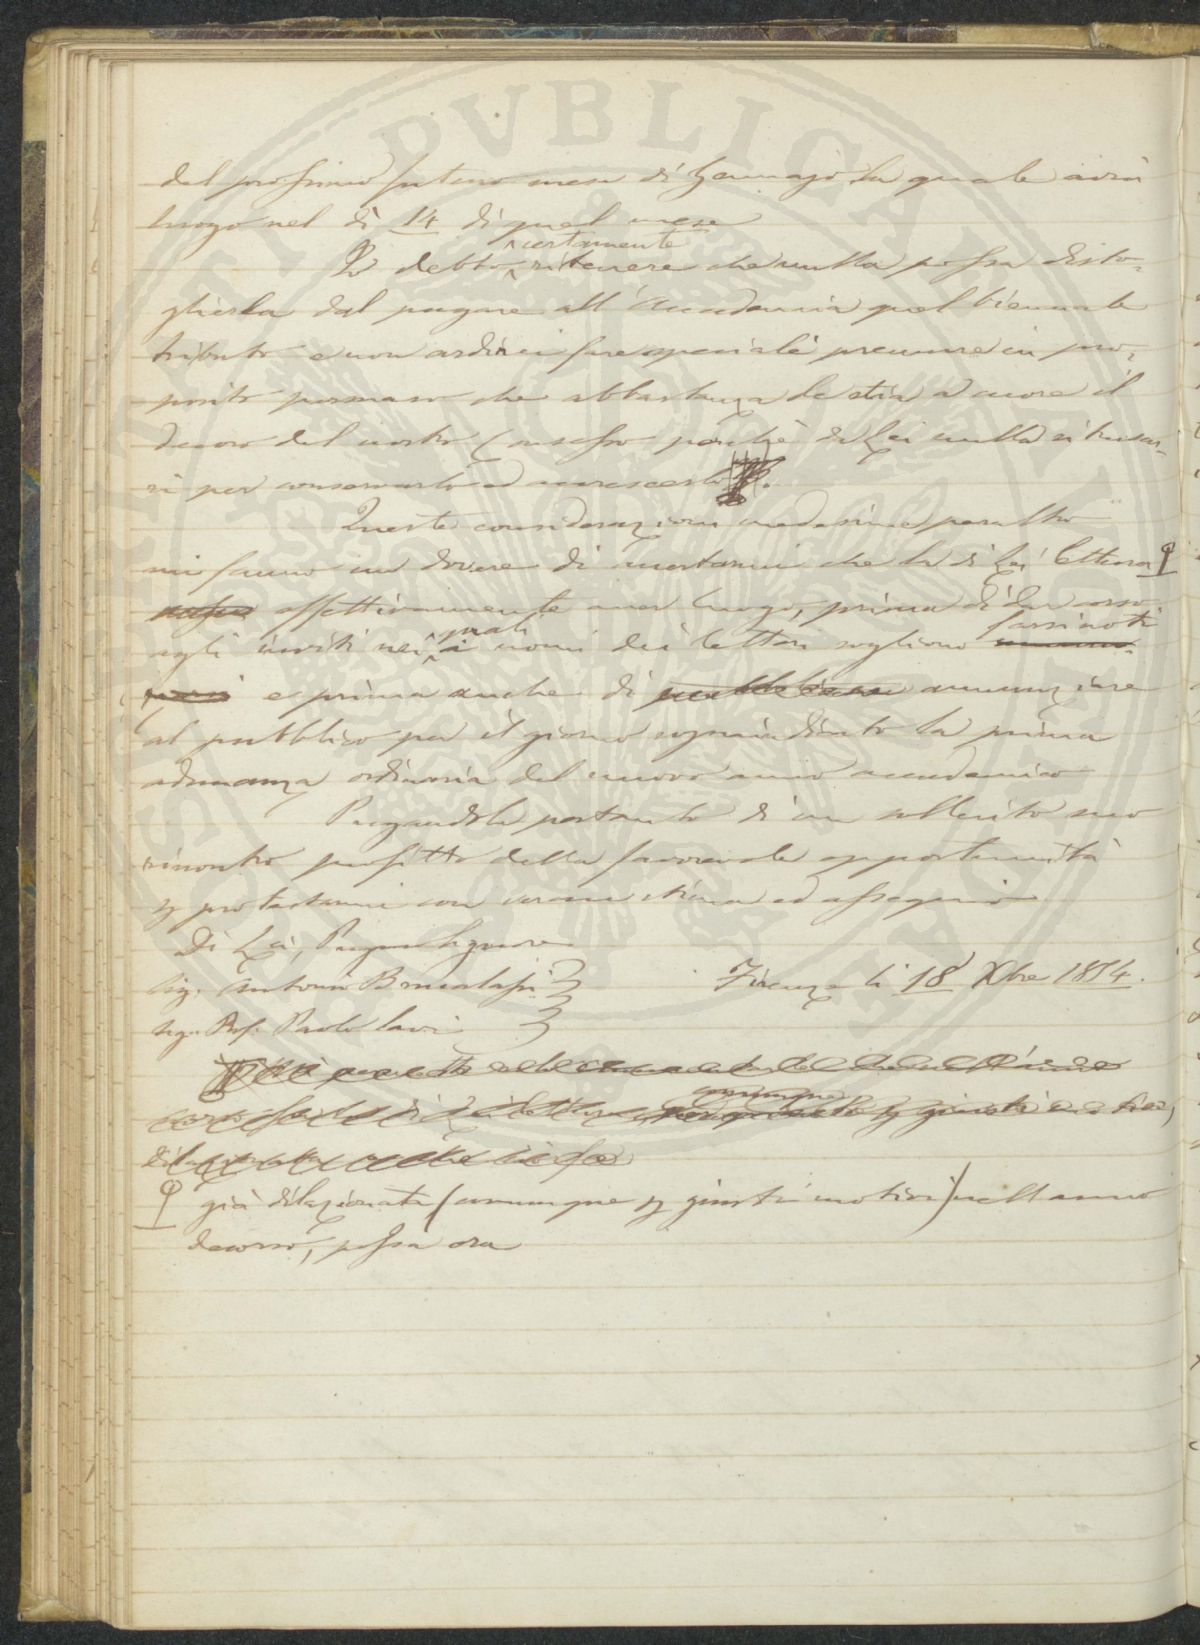 del prossimo futuro mese di Gennajo la quale avrà
luogo nel dì 14 di quel mese
certamente
Io debbo ritenere che nulla possa disto-
glierla dal pagare all'Accademia quel biennale
tributo e non ardirei fare speciali premure in pro-
posito persuaso che abbastanza le stia a cuore il
decoro del nostro Consesso perchè da Lei nulla si trascu-
ri per conservarlo ed accrescerlo.
Queste considerazioni medesime peraltro
mi fanno un dovere di accertarmi che la di Lei lettura
effettivamente aver luogo, prima di dar corso
quali farsi noti
agli inviti nei i nomi dei lettori sogliono
e prima anche di pubblicare annunziare
al pubblico per il giorno sopraindicato la prima
adunanza ordinaria del nuovo anno accademico
Pregandola pertanto di un sollecito suo
riscontro profitto della favorevole opportunità
p protestarmi con vera stima ed ossequio
Di Lei, Pregmo Signore
Sig. Antonio Brucalassi
Firenze li 18 Xbre 1854.
Sig. Prof. Paolo Savi
già dilazionata (comunque p giusti motivi) nell'anno
decorso, possa ora
PVBLICAE